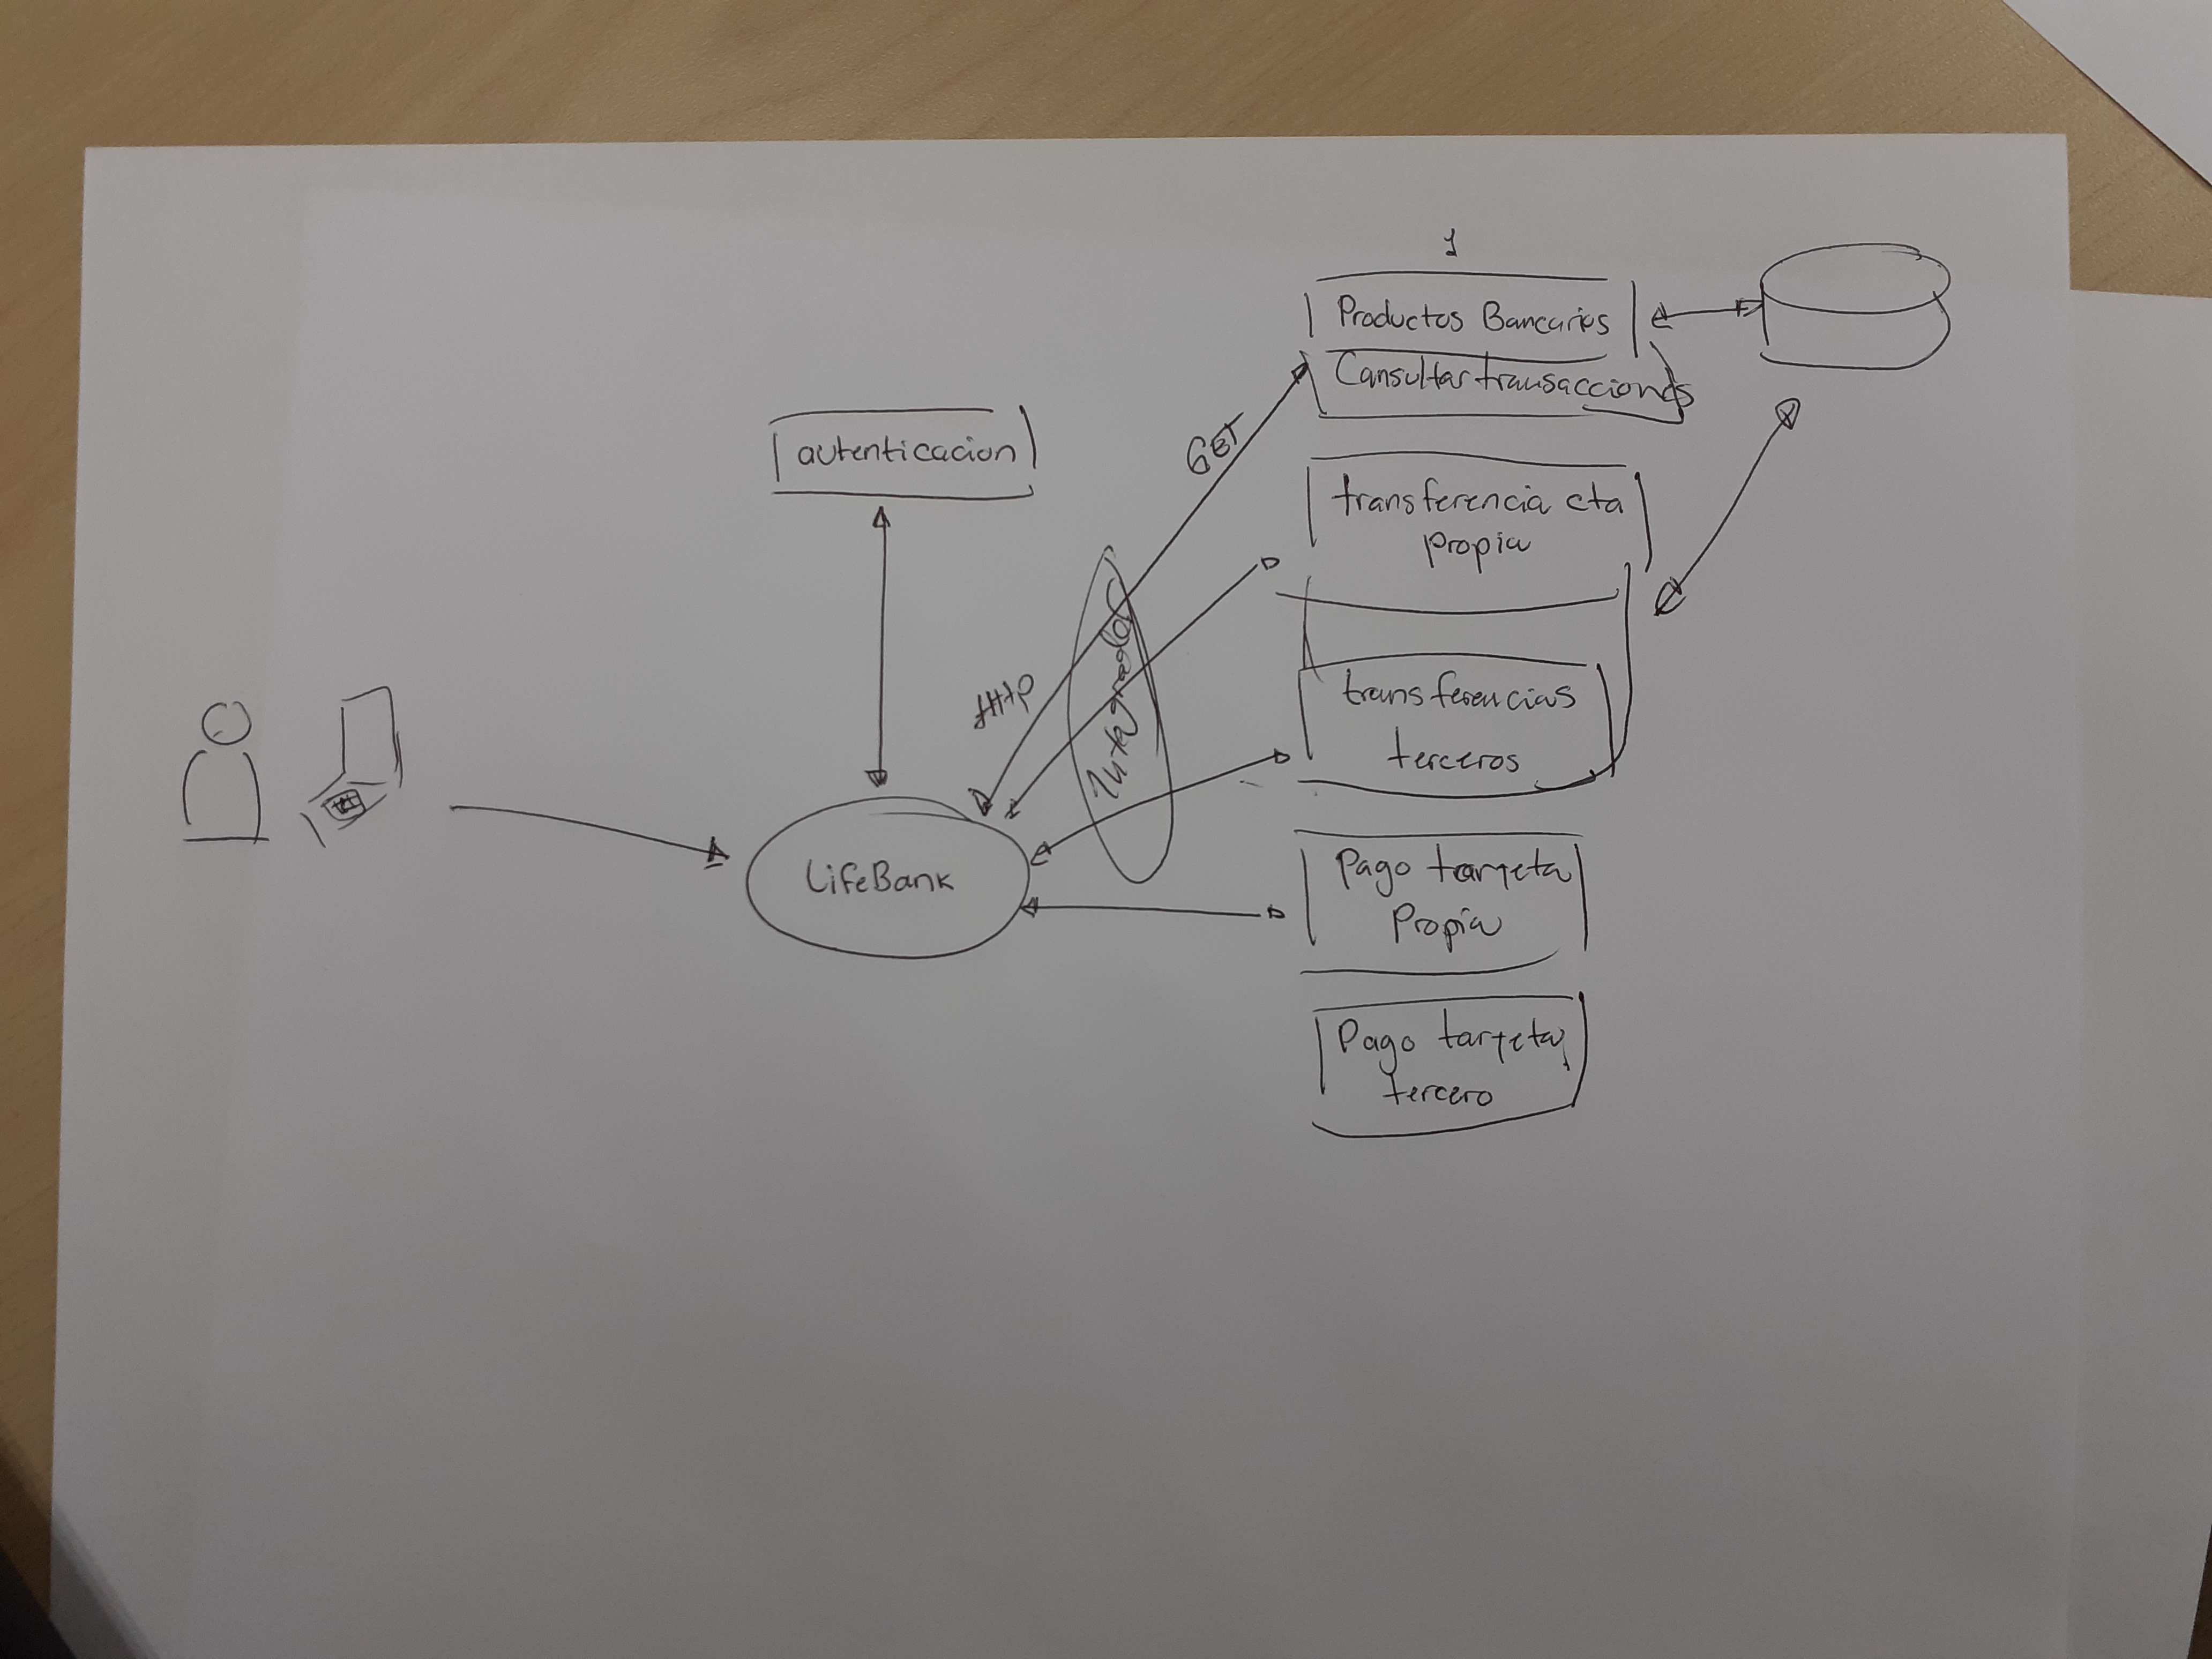 autenticacion
LifeBank
HTTP
GET
1
Productos Bancarios
Consultar transacciones
transferencia cta
propia
transferencias
terceros
Pago tarjeta
Propia
Pago tarjeta
tercero